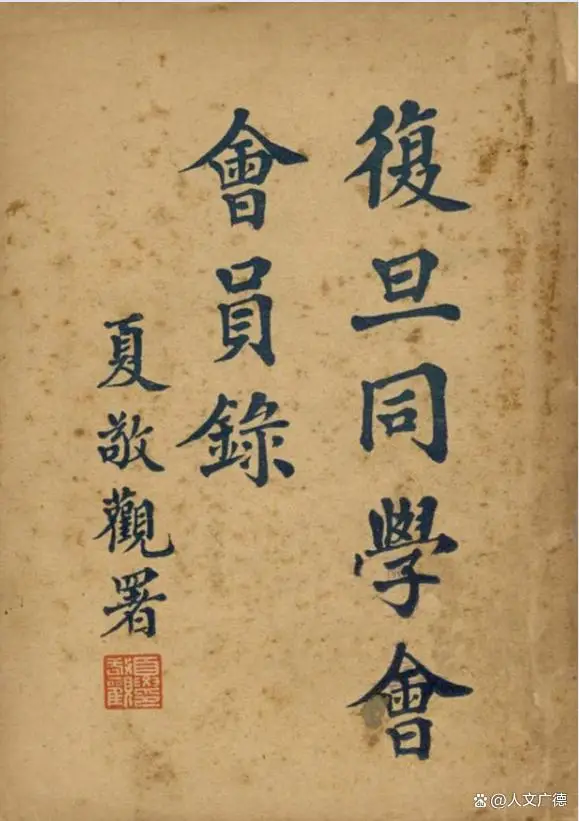 復旦同學會
會員錄
夏敬觀署
@人文广德